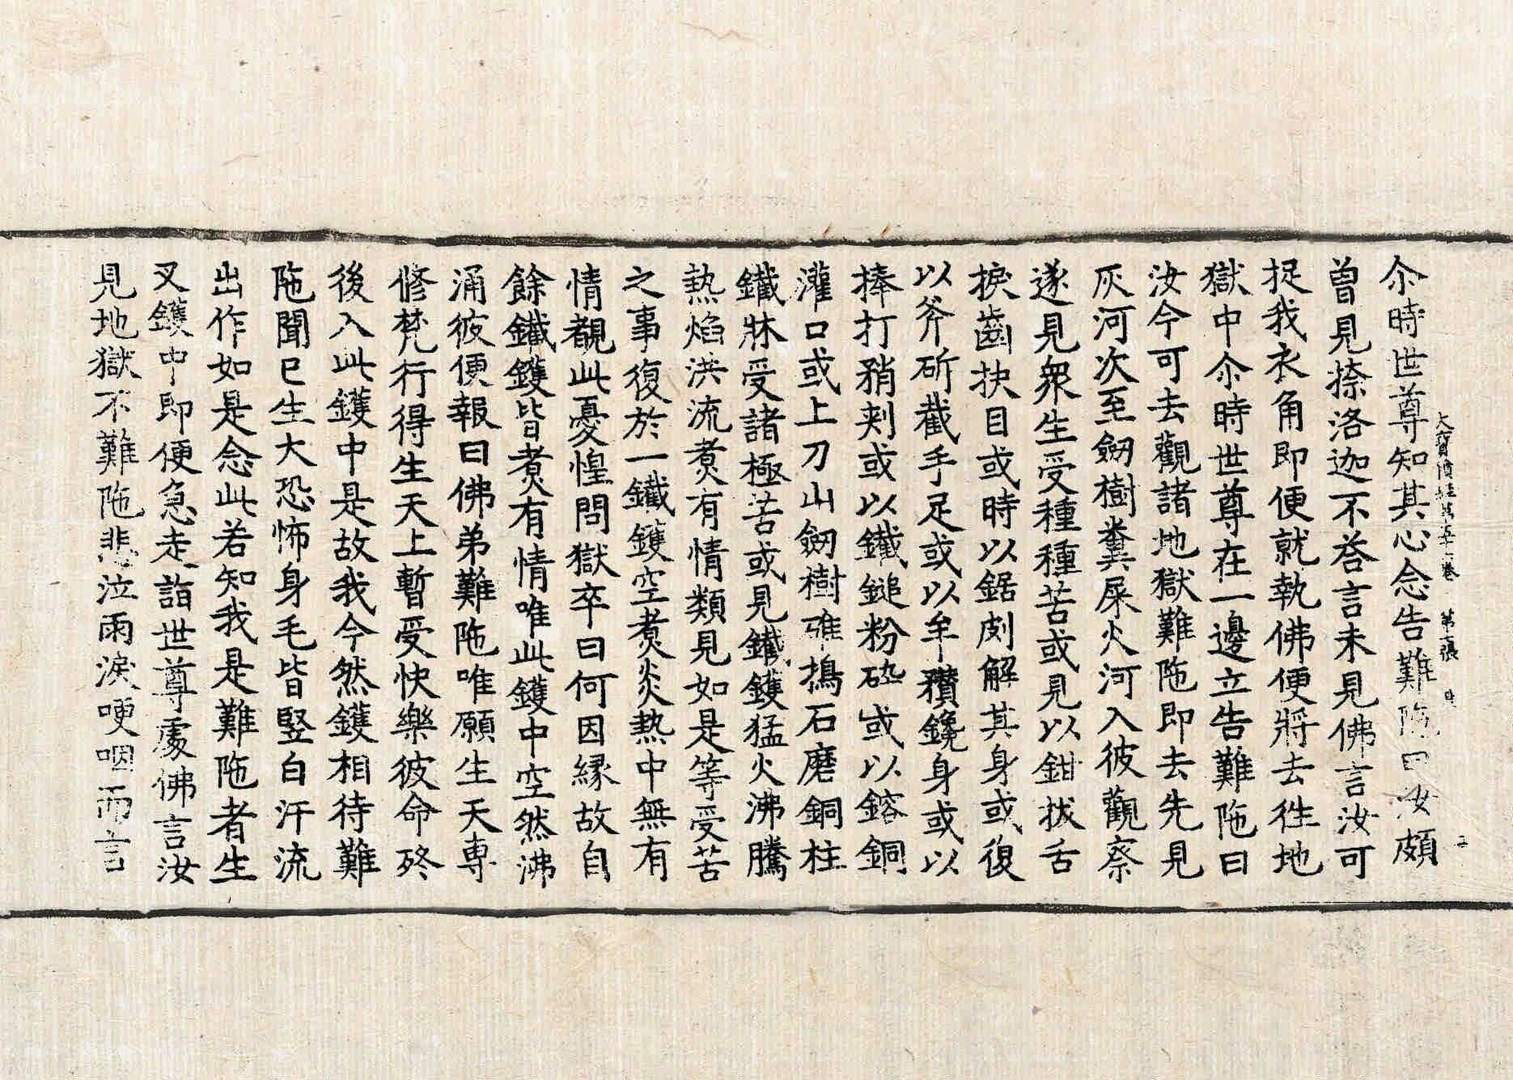 大寶積經第五十六卷 第二張
尒時世尊知其心念告難陁曰汝頗
曾見捺洛迦不荅言未見佛言汝可
捉我衣角即便就執佛便將去徃地
獄中尒時世尊在一邊立告難陁曰
汝今可去觀諸地獄難陁即去先見
灰河次至劒樹糞屎火河入彼觀察
遂見衆生受種種苦或見以鉗拔舌
捩齒抉目或時以鋸剫解其身或復
以斧斫截手足或以牟䂎鑱身或以
捧打矟刺或以鐵鎚粉砕或以鎔銅
灌口或上刀山劒樹碓擣石磨銅柱
鐵牀受諸極苦或見鐵鑊猛火沸騰
熱焰洪流煑有情類見如是等受苦
之事復於一鐵鑊空煑炎熱中無有
情覩此憂惶問獄卒曰何因縁故自
餘鐵鑊皆煑有情唯此鑊中空然沸
涌彼便報曰佛弟難陁唯願生天專
修梵行得生天上暫受快樂彼命終
後入此鑊中是故我今然鑊相待難
陁聞已生大恐怖身毛皆竪白汗流
出作如是念此若知我是難陁者生
叉鑊中即便急走詣世尊處佛言汝
見地獄不難陁悲泣雨淚哽咽而言